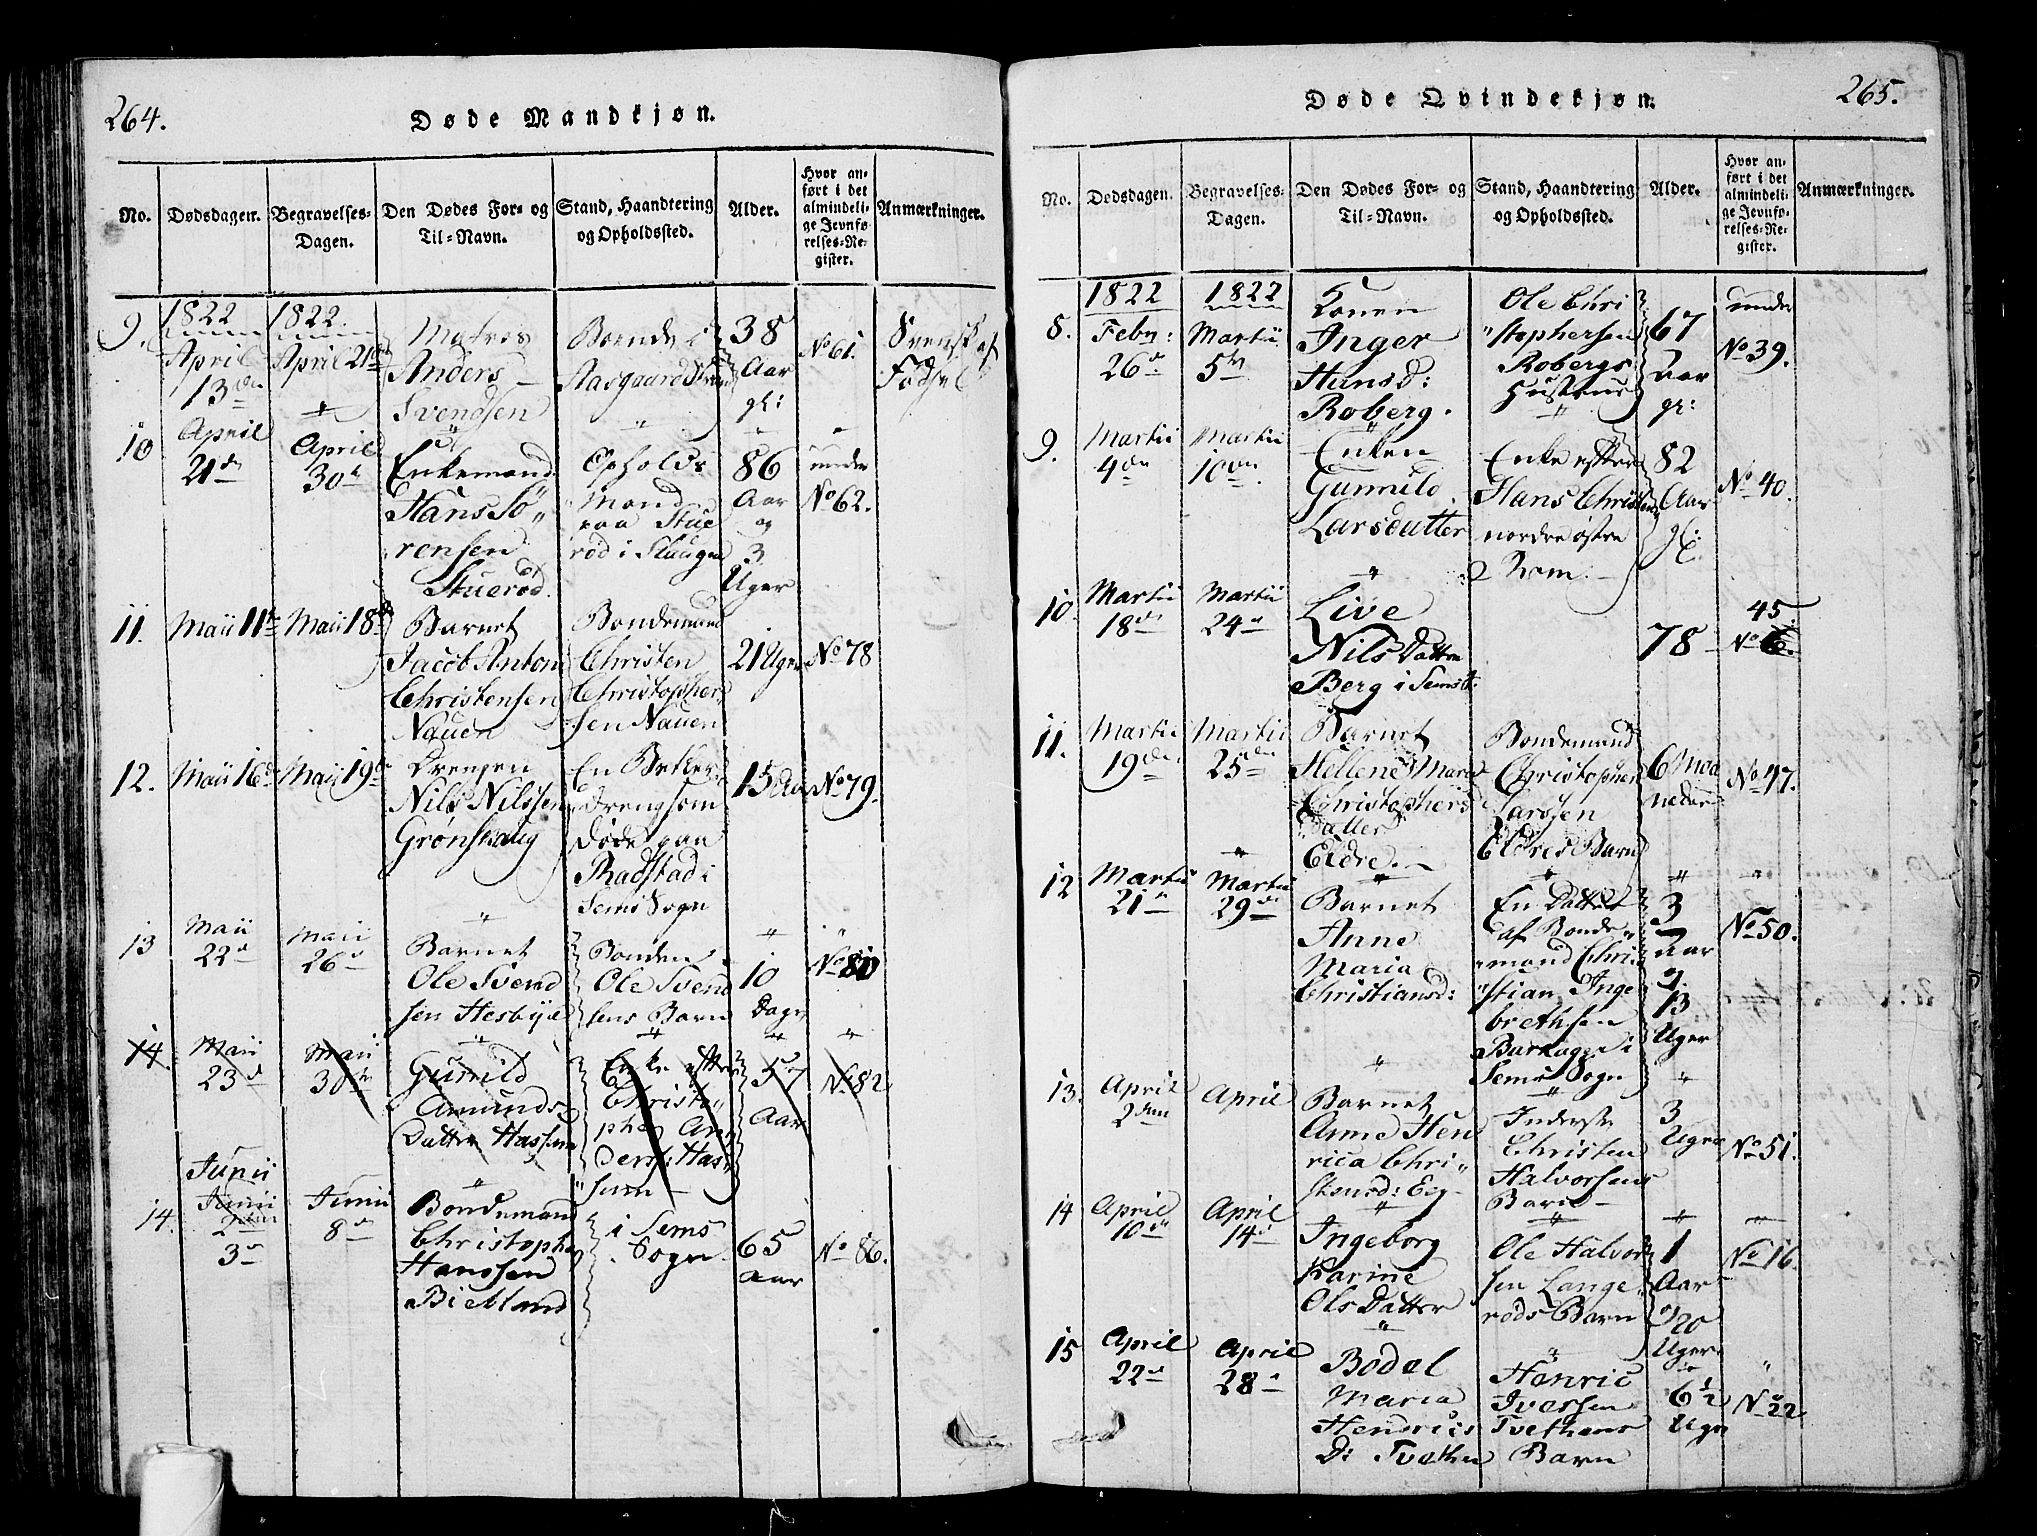 264.
Døde Mandkjøn.
No.
Dødsdagen.
Begravelses-
Dagen.
Den Dødes For- og
Til-Navn.
Stand, Haandtering
og Opholdssted.
Alder.
Hvor an-
ført i det
almindeli-
ge Jevnfø-
relses-Re-
gister.
Anmærkninger.
9.
1822
April
13de
1822.
April 21de
Matros
Anders
Svendsen
Boende i
Aasgaardstran
38
Aar
gl:
No 61.
Svensk af
Fødsel
10
April
21de
April
30te
Enkemand
Hans Sö„
rensen
Stuerød.
Opholds
Mand
paa Stue
rød i Slaugen
86
Aar
og
3
Uger
under
No 62.
11.
Maii 11te
Maii 18de
Barnet
Jacob Anton
Christensen
Nauen
Bondemand
Christen
Christopher
sen Nauen
21 Uger
No 78
12.
Maii 16de
Maii 19de
Drengen
Nils Nilssen
Grønshaug
En Betler
dreng som
døde paa
Rastad i
Sems Sogn
15 Aar
No 79.
13
Maii
22de
Maii
26de
Barnet
Ole Svend
sen Hesbye
Bonden
Ole Svend
sens Barn
10
Dage
No 80
14.
Maii
23de
Maii
30te
Gunild
Amunds
Datter Hassum
Enke efter
Christo„
pher An
ders: Has
sum
57
Aar
No 82
14.
Junii
Junii
2den
3de
Junii
8de
Bondeman
Christopher
Hanssen
Biekland
i Sems
Sogn
65
Aar
No 86.
265.
Døde Qvindekjøn.
No.
Dødsdagen.
Begravelses-
Dagen.
Den Dødes For- og
Til-Navn.
Stand, Haandtering
og Opholdssted.
Alder.
Hvor an-
ført i det
almindeli-
ge Jevnfø-
relses-Re-
gister.
Anmærkninger.
8.
1822
Febr:
26de
1822
Martii
5te
Konen
Inger
Hansd:
Roberg.
Ole Chri
„stophersen
Robergs
Hustrue
67
Aar
gl:
under
No 39.
9.
Martii
4de
Martii
10de
Enken
Gunnild
Larsdatter
Enke efter
Hans Christens
nordre østre
Rom.
82
Aar
gl:
No 40.
10.
Martii
18de
Martii
24de
Live
Nils Datter
Berg i Sems
78
45.
No 6.
11.
Martii
19de
Martii
25de
Barnet
Hellene Marie
Christophers
datter
Eldre.
Bondemand
Christopher
Larssen
Eldres Barn
6 Maa
neder
No 47.
12
Martii
21de
Martii
29de
Barnet
Anne
Maria
Christiansd:
En Datter
af Bonde„
„mand Chri
„stian Inge
brethsen
Barkager i
Sems Sogn
3
Aar
og
13
Uger
No 50.
13.
April
2den
April
Barnet
Anne Hen
rica Chri„
stensd: Eeg
Inderste
Christen
Halvorsens
Barn
3
Uger
No 51.
14
April
10de
April
14de
Ingeborg
Karine
Ols Datter
Ole Halvor
sen Lange
røds Barn
1
Aar
og 20
Uger
No 16.
15
April
22de
April
28de
Bodel
Maria
Hendrics
D: Tvethen
Henric
Iverssen
Tvethens
Barn
6 1/2
Uger
No 22